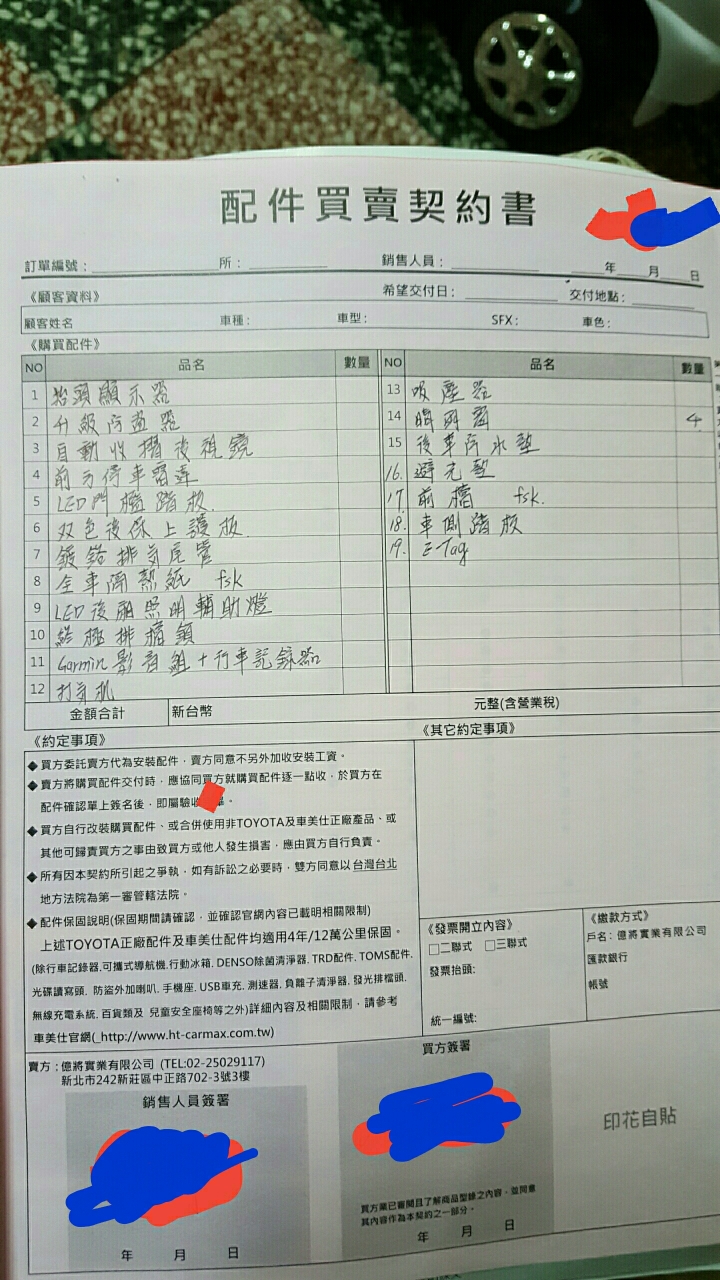 配件買賣契約書
訂單編號： 所： 銷售人員： 年 月 日
《顧客資料》 希望交付日： 交付地點：
顧客姓名 車種： 車型： SFX： 車色：
《購買配件》
NO 品名 數量 NO 品名 數量
1 抬頭顯示器
2 升級防盜器
3 自動收摺後視鏡
4 前方停車雷達
5 LED門檻踏板
6 双色後保上護板
7 鍍鉻排氣尾管
8 全車隔熱紙 fsk
9 LED後廂照明輔助燈
10 終極排檔鎖
11 Garmin影音組+行車記錄器
12 打氣机
13 吸塵器
14 晴雨窗 4
15 後車箱防水墊
16. 避光墊
17. 前檔 fsk.
18. 車側踏板
19. E-Tag
金額合計 新台幣 元整(含營業稅)
《約定事項》
◆買方委託賣方代為安裝配件，賣方同意不另外加收安裝工資。
◆賣方將購買配件交付時，應協同買方就購買配件逐一點收，於買方在
配件確認單上簽名後，即屬驗收
◆買方自行改裝購買配件、或合併使用非TOYOTA及車美仕正廠產品、或
其他可歸責買方之事由致買方或他人發生損害，應由買方自行負責。
◆所有因本契約所引起之爭執，如有訴訟之必要時，雙方同意以台灣台北
地方法院為第一審管轄法院。
◆配件保固說明(保固期間請確認，並確認官網內容已載明相關限制)
上述TOYOTA正廠配件及車美仕配件均適用4年/12萬公里保固。
(除行車記錄器,可攜式導航機,行動冰箱, DENSO除菌清淨器, TRD配件, TOMS配件,
光碟讀寫頭, 防盜外加喇叭, 手機座, USB車充, 測速器, 負離子清淨器, 發光排檔頭,
無線充電系統, 百貨類及 兒童安全座椅等之外)詳細內容及相關限制，請參考
車美仕官網(_http://www.ht-carmax.com.tw)
《其它約定事項》
《發票開立內容》
□二聯式 □三聯式
發票抬頭:
統一編號:
《繳款方式》
戶名：億將實業有限公司
匯款銀行
帳號
賣方：億將實業有限公司 (TEL:02-25029117)
新北市242新莊區中正路702-3號3樓
銷售人員簽署
年 月 日
買方簽署
買方業已審閱且了解商品型錄之內容，並同意
其內容作為本契約之一部分。
年 月 日
印花自貼